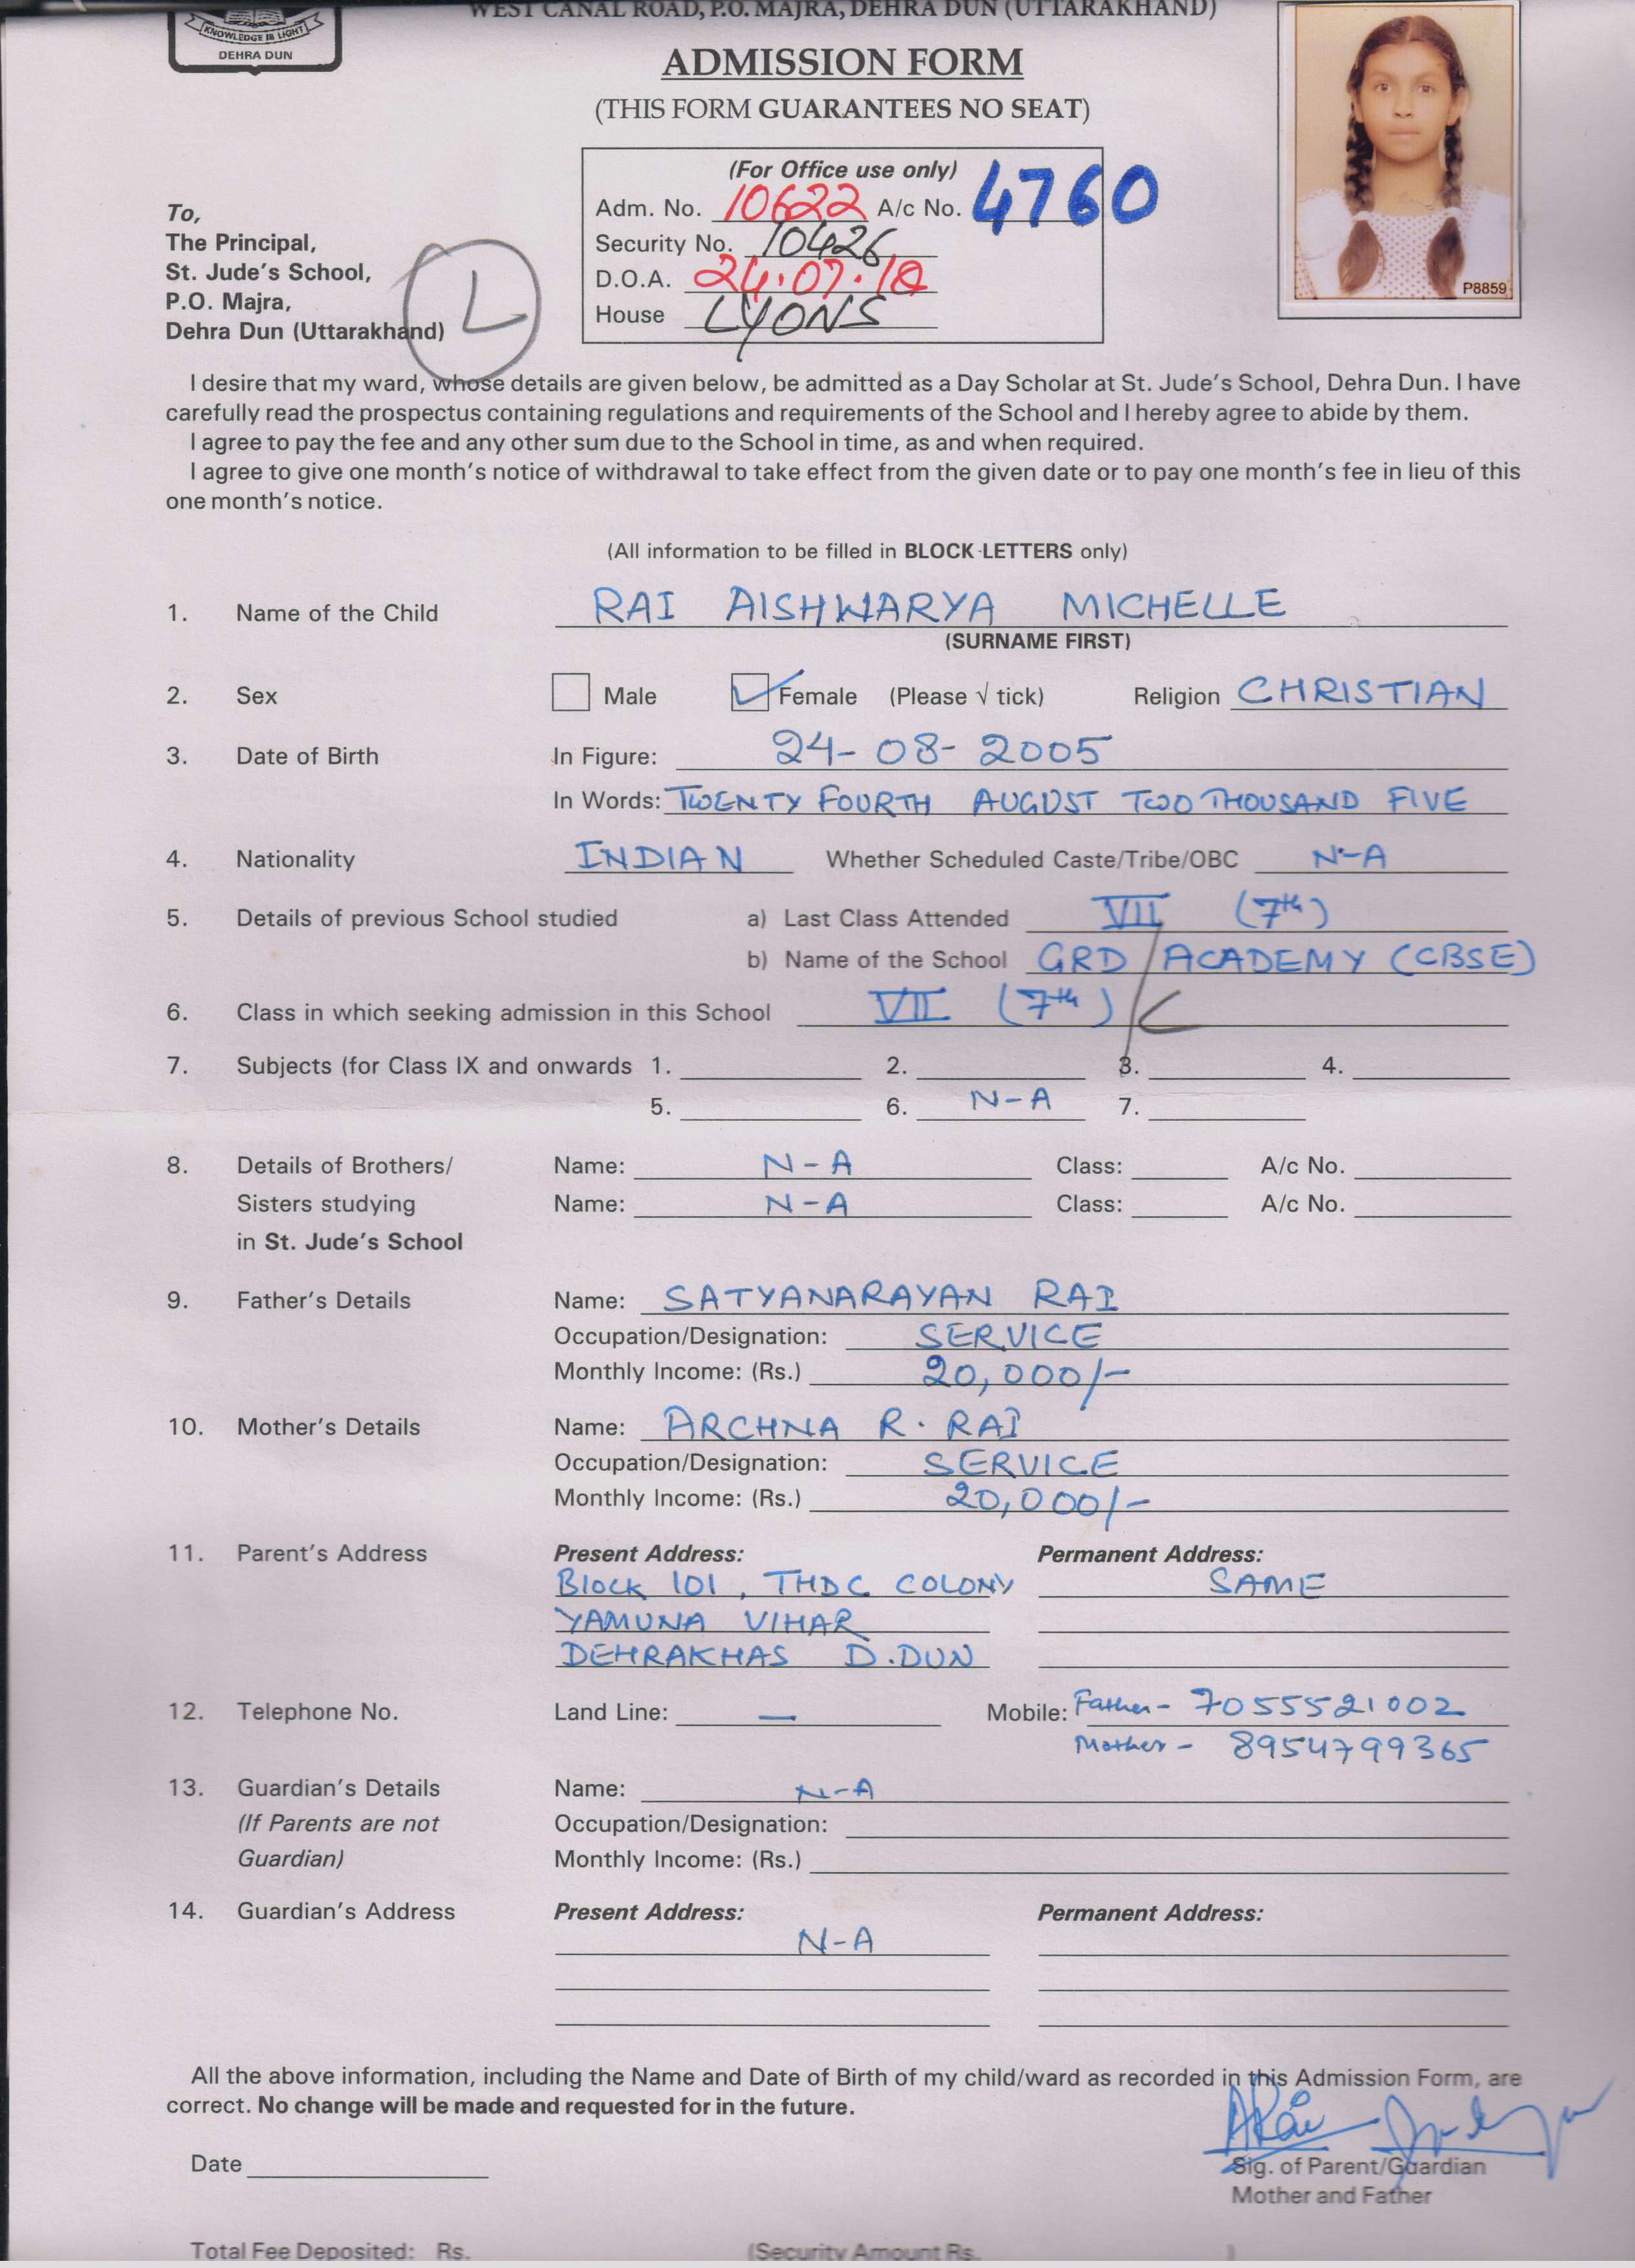 WEST CANAL ROAD, P.O. MAJRA, DEHRA DUN (UTTARAKHAND)
KNOWLEDGE IS LIGHT
DEHRA DUN
ADMISSION FORM
(THIS FORM GUARANTEES NO SEAT)
P8859
(For Office use only)
Adm. No. 10622 A/c No. 4760
Security No. 10426
D.O.A. 24.07.18
House LYONS
To,
The Principal,
St. Jude's School,
P.O. Majra,
Dehra Dun (Uttarakhand)
L
I desire that my ward, whose details are given below, be admitted as a Day Scholar at St. Jude's School, Dehra Dun. I have
carefully read the prospectus containing regulations and requirements of the School and I hereby agree to abide by them.
I agree to pay the fee and any other sum due to the School in time, as and when required.
I agree to give one month's notice of withdrawal to take effect from the given date or to pay one month's fee in lieu of this
one month's notice.
(All information to be filled in BLOCK LETTERS only)
1. Name of the Child RAI AISHWARYA MICHELLE
(SURNAME FIRST)
2. Sex Male Female (Please √ tick) Religion CHRISTIAN
3. Date of Birth In Figure: 24-08-2005
In Words: TWENTY FOURTH AUGUST TWO THOUSAND FIVE
4. Nationality INDIAN Whether Scheduled Caste/Tribe/OBC N-A
5. Details of previous School studied a) Last Class Attended VII (7th)
b) Name of the School GRD ACADEMY (CBSE)
6. Class in which seeking admission in this School VII (7th)
7. Subjects (for Class IX and onwards 1. 2. 3. 4.
5. 6. N-A 7.
8. Details of Brothers/ Name: N-A Class: A/c No.
Sisters studying Name: N-A Class: A/c No.
in St. Jude's School
9. Father's Details Name: SATYANARAYAN RAI
Occupation/Designation: SERVICE
Monthly Income: (Rs.) 20,000/-
10. Mother's Details Name: ARCHNA R. RAI
Occupation/Designation: SERVICE
Monthly Income: (Rs.) 20,000/-
11. Parent's Address Present Address: Permanent Address:
Block 101, THDC COLONY SAME
YAMUNA VIHAR
DEHRAKHAS D.DUN
12. Telephone No. Land Line: — Mobile: Father - 7055521002
Mother - 8954799365
13. Guardian's Details Name: N-A
(If Parents are not Occupation/Designation:
Guardian) Monthly Income: (Rs.)
14. Guardian's Address Present Address: Permanent Address:
N-A
All the above information, including the Name and Date of Birth of my child/ward as recorded in this Admission Form, are
correct. No change will be made and requested for in the future.
ARai
Date Sig. of Parent/Guardian
Mother and Father
Total Fee Deposited: Rs. (Security Amount Rs. )